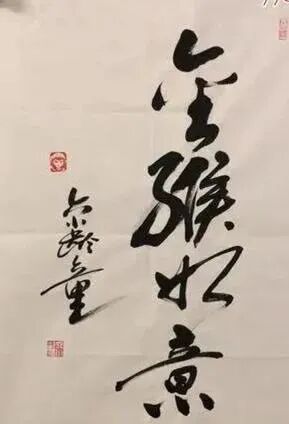 金猴如意
六小龄童